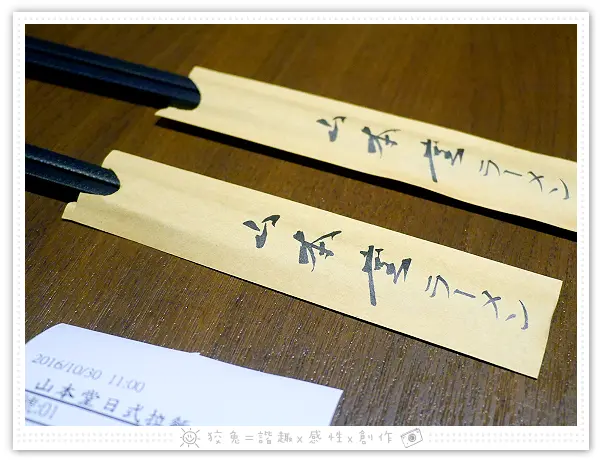 山本堂ラーメン
山本堂ラーメン
2016/10/30 11:00
山本堂日式拉麵
:01
狡兔=諧趣x感性x創作